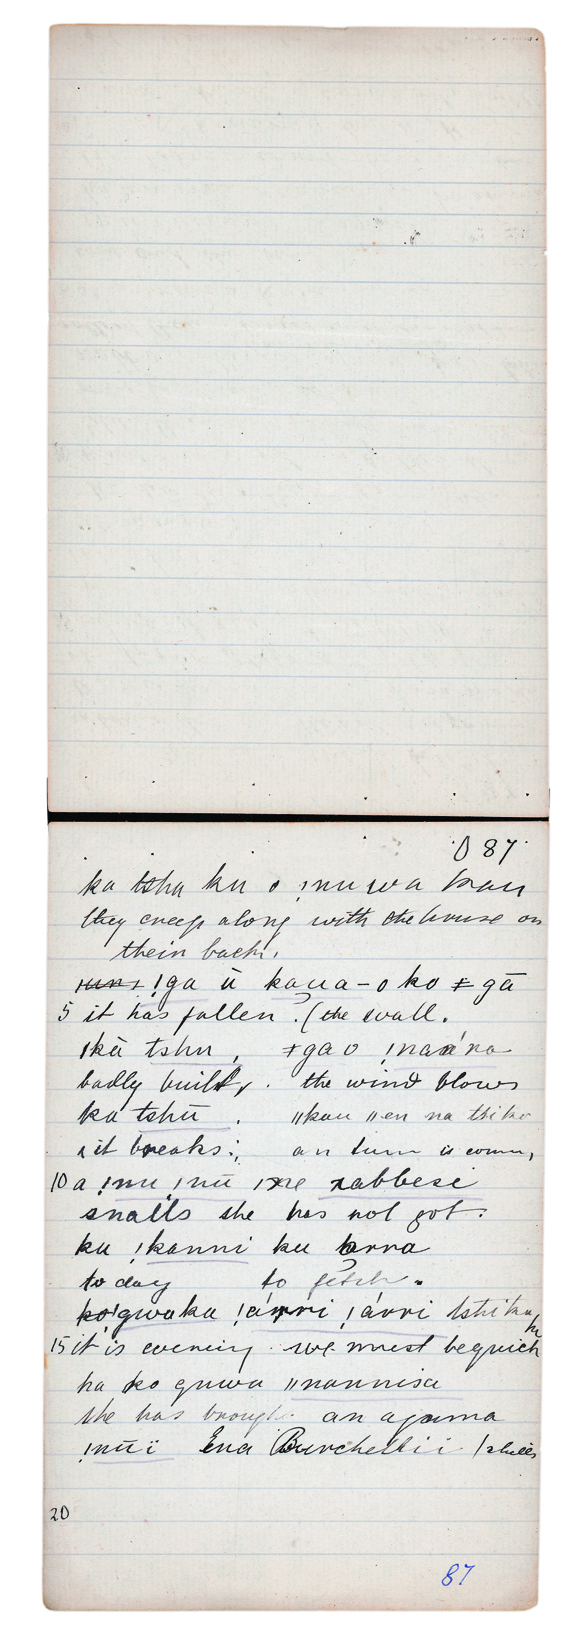 D 87
ka tsha ku o ǃnu wa kau
they creep along with the house on
their back.
ǃga ū kaua-o ko ǂ gā
5 it has fallen ? (the wall.
ǀkā tshu, ǂgao ǃnaána
badly built, . the wind blows
ka tshū . ǁkau ǁen na tsiko
it breaks; an turn is
10 a ǃnu ǀnū ǀne rabbesi
snails she has not got.
ku ǃkanni ku barra
to day to fetch.
ko'gwaka ǃárri ǃárri
15 it is evening. we must be quick
ha ko guwa ǁnannisa
she has brought an agama
ǃnūï Ena Burchellii /shells
20
87